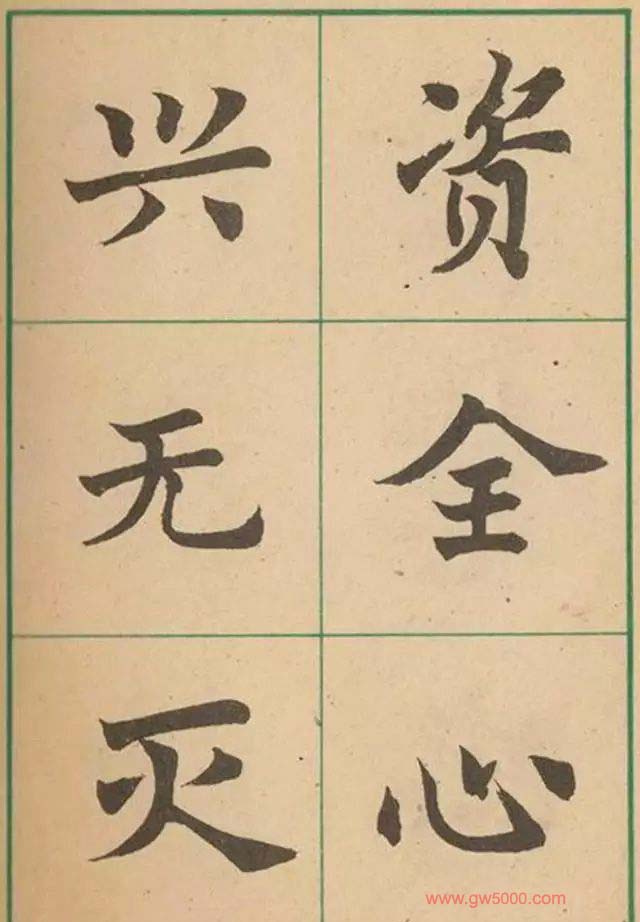 兴无灭
资全心
www.gw5000.com